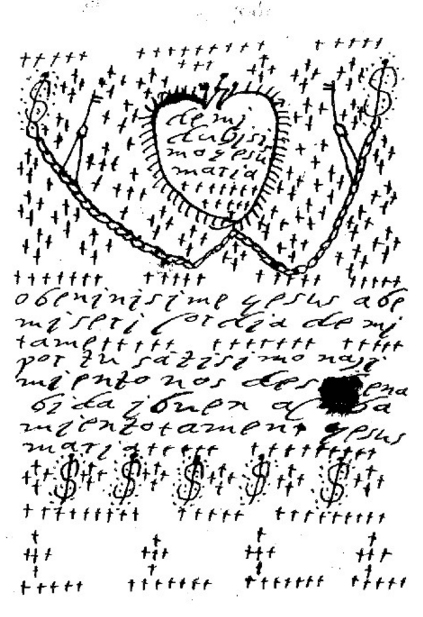 de mi
dulzisi
mo gesu
maria
o beninisime yesus abe
miseri cordia de mj
tame
por tu sātisimo naſi
miento nos des ena
bida ibuen a ba
miento tament yesus
maria